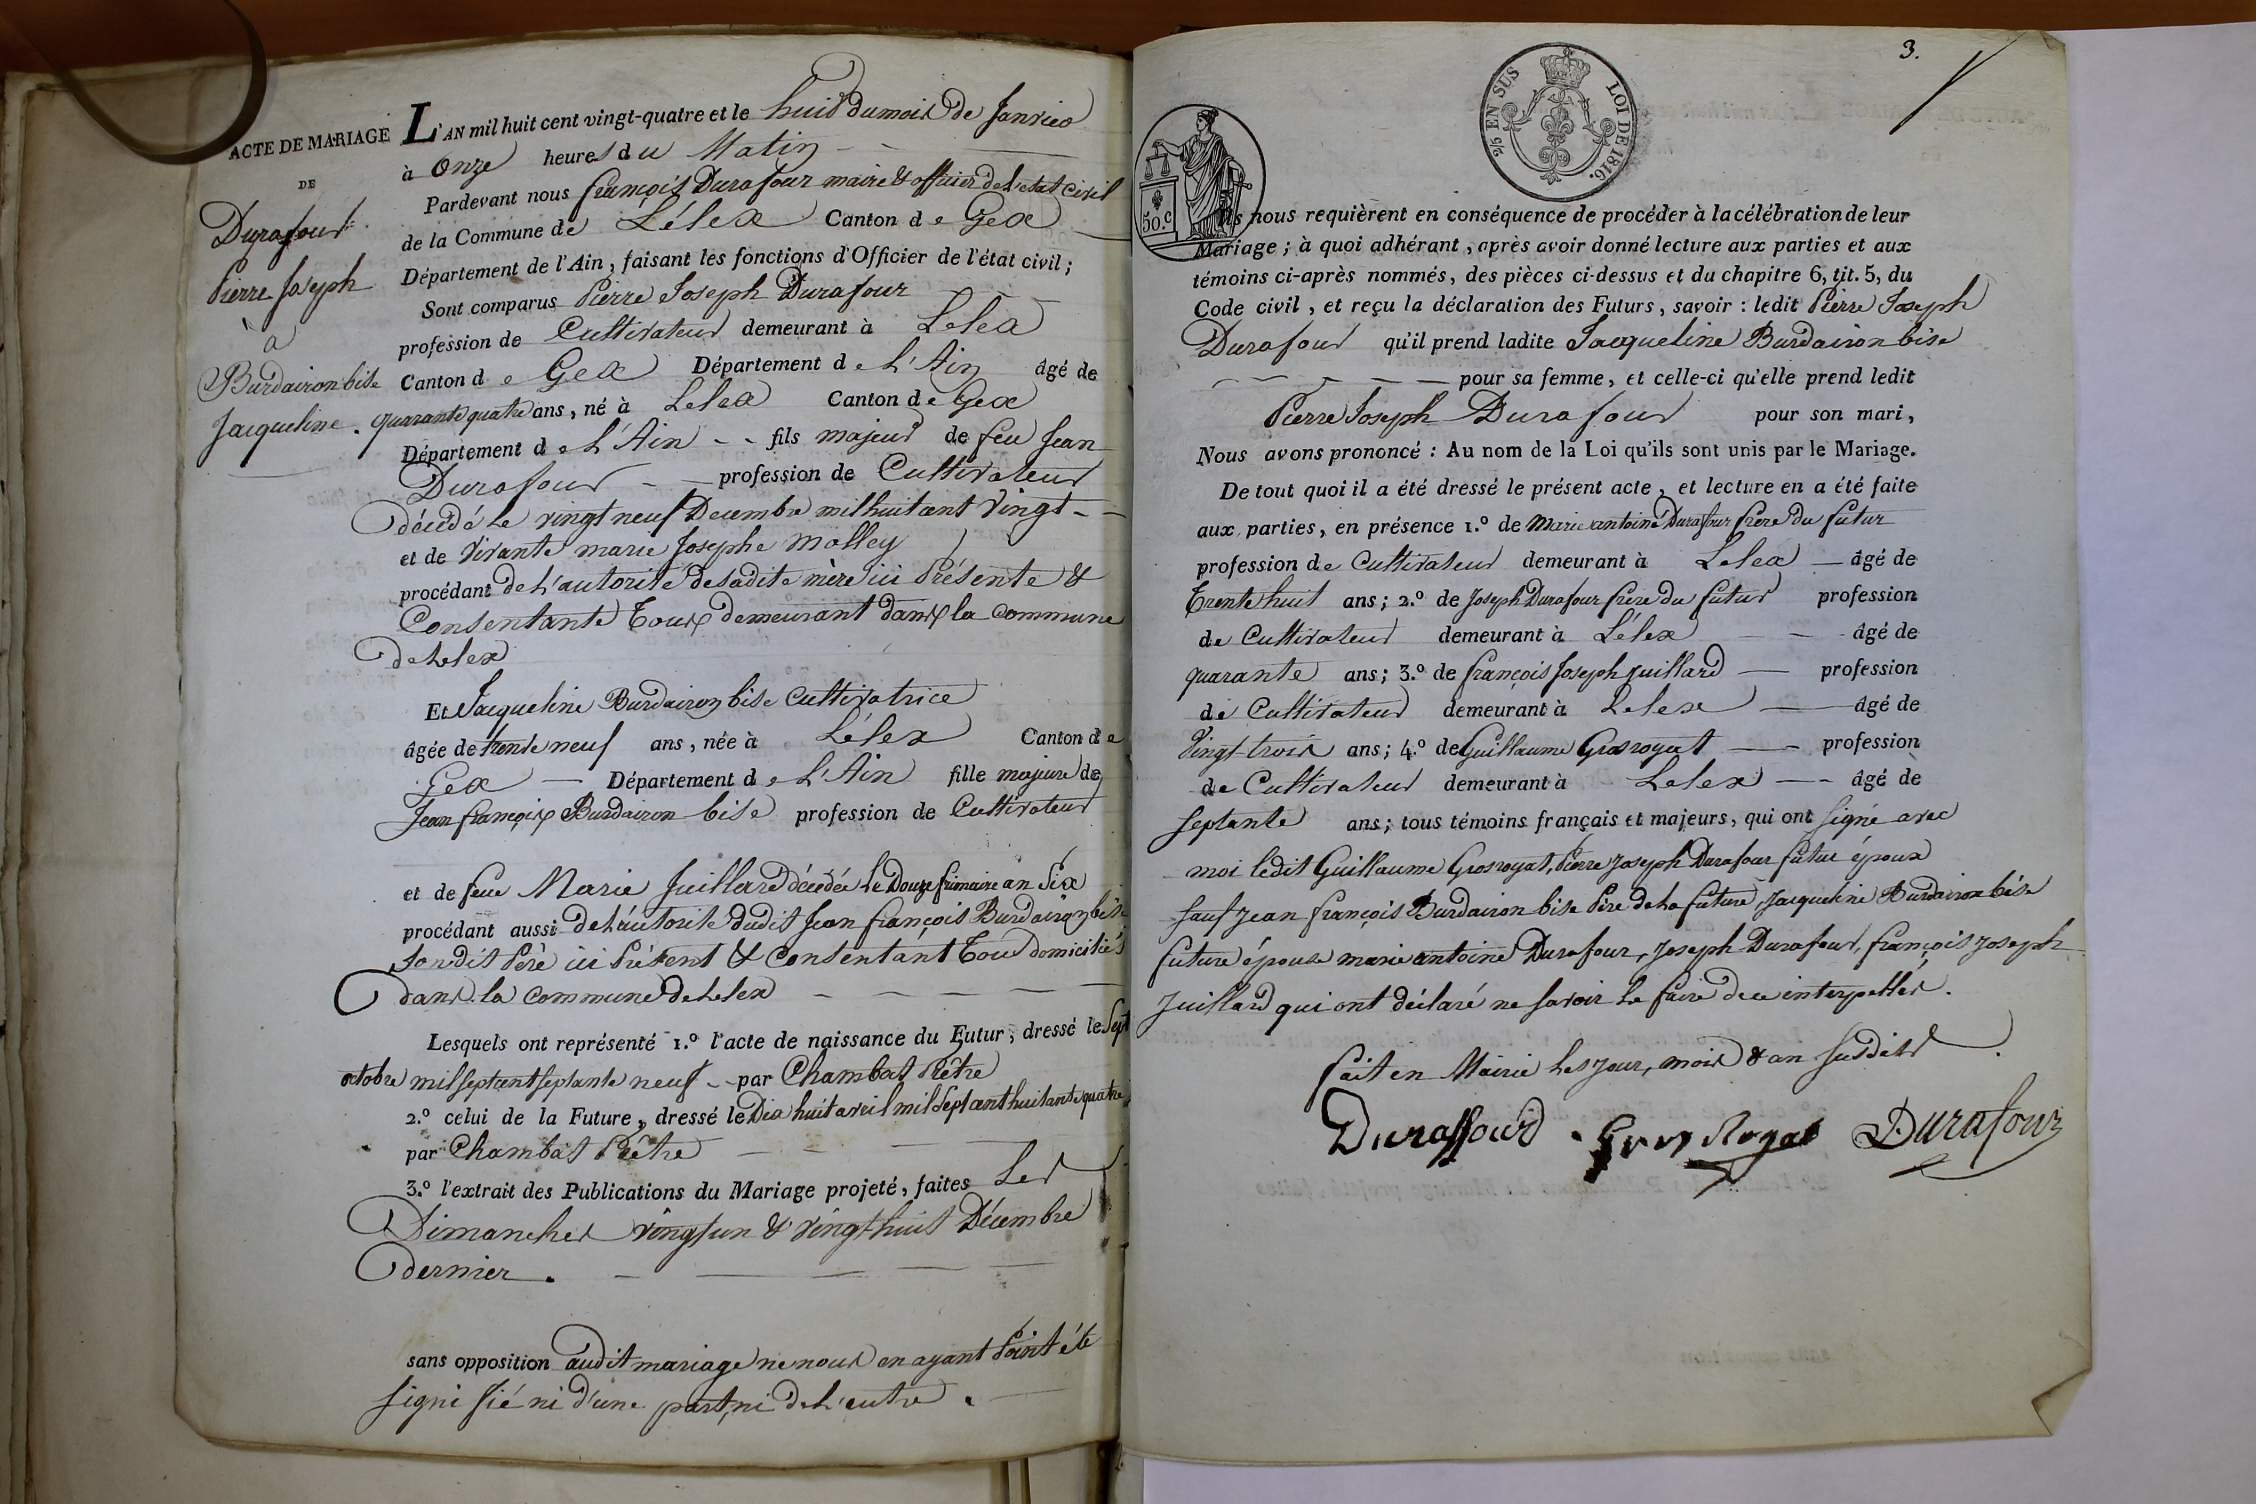 ACTE DE MARIAGE
DE
Durafour
Pierre Joseph
à
Burdairon bise
Jacqueline.
L'AN mil huit cent vingt-quatre et le huit du mois de Janvier
à Onze heures du Matin
Pardevant nous françois Durafour maire & officier de l'etat civil
de la Commune de Lélex Canton de Gex
Département de l'Ain, faisant les fonctions d'Officier de l'état civil;
Sont comparus Pierre Joseph Durafour
profession de Cultivateur demeurant à Lelex
Canton de Gex Département de L'Ain âgé de
quarante quatre ans, né à Lelex Canton de Gex
Département de L'Ain -- fils majeur de feu Jean
Durafour - profession de Cultivateur
décédé le vingt neuf Decembre mil huit cent vingt --
et de vivante marie Josephe Molley
procédant de L'autorité de sadite mère ici Présente &
Consentante Tous demeurant dans la commune
de Lelex
Et Jacqueline Burdairon bise cultivatrice
âgée de trente neuf ans, née à Lélex Canton de
Gex - Département de L'Ain fille majeure de
Jean françois Burdairon bise profession de Cultivateur
et de feue Marie Juillard décédée le Douze frimaire an Six
procédant aussi de L'autorité dudit Jean françois Burdairon bise
son dit Père ici Présent & Consentant Tous domiciliés
dans la commune de Lelex - - - -
Lesquels ont représenté 1.º l'acte de naissance du Futur, dressé le Sept
octobre mil sept cent septante neuf - par Chambat Prêtre
2.º celui de la Future, dressé le Dix huit avril mil Sept cent huitante quatre
par Chambat Prêtre
3.º l'extrait des Publications du Mariage projeté, faites Les
Dimanches vingt un & vingt huit Décembre
dernier.
sans opposition audit mariage ne nous en ayant Point été
signifié ni d'une part, ni de L'autre.
3.
2/5 EN SUS LOI DE 1816.
50.c
Ils nous requièrent en conséquence de procéder à la célébration de leur
Mariage; à quoi adhérant, après avoir donné lecture aux parties et aux
témoins ci-après nommés, des pièces ci-dessus et du chapitre 6, tit. 5, du
Code civil, et reçu la déclaration des Futurs, savoir: ledit Pierre Joseph
Durafour qu'il prend ladite Jacqueline Burdairon bise
pour sa femme, et celle-ci qu'elle prend ledit
Pierre Joseph Durafour pour son mari,
Nous avons prononcé: Au nom de la Loi qu'ils sont unis par le Mariage.
De tout quoi il a été dressé le présent acte, et lecture en a été faite
aux parties, en présence 1.º de Marie antoine Durafour frère du futur
profession de Cultivateur demeurant à Lelex - âgé de
Trente huit ans; 2.º de Joseph Durafour frère du futur profession
de Cultivateur demeurant à Lélex - âgé de
quarante ans; 3.º de françois Joseph juillard - profession
de Cultivateur demeurant à Lelex - âgé de
Vingt trois ans; 4.º de Guillaume Grosroyat - profession
de Cultivateur demeurant à Lelex -- âgé de
septante ans; tous témoins français et majeurs, qui ont signé avec
moi ledit Guillaume Grosroyat, Pierre Joseph Durafour futur époux
sauf Jean françois Burdairon bise Père de la future, Jacqueline Burdairon bise
future épouse marie antoine Durafour, Joseph Durafour, françois Joseph
Juillard qui ont déclaré ne savoir le faire de ce interpellés.
fait en Mairie les jour, mois & an susdits.
Duraffourd Gros Royat Durafour